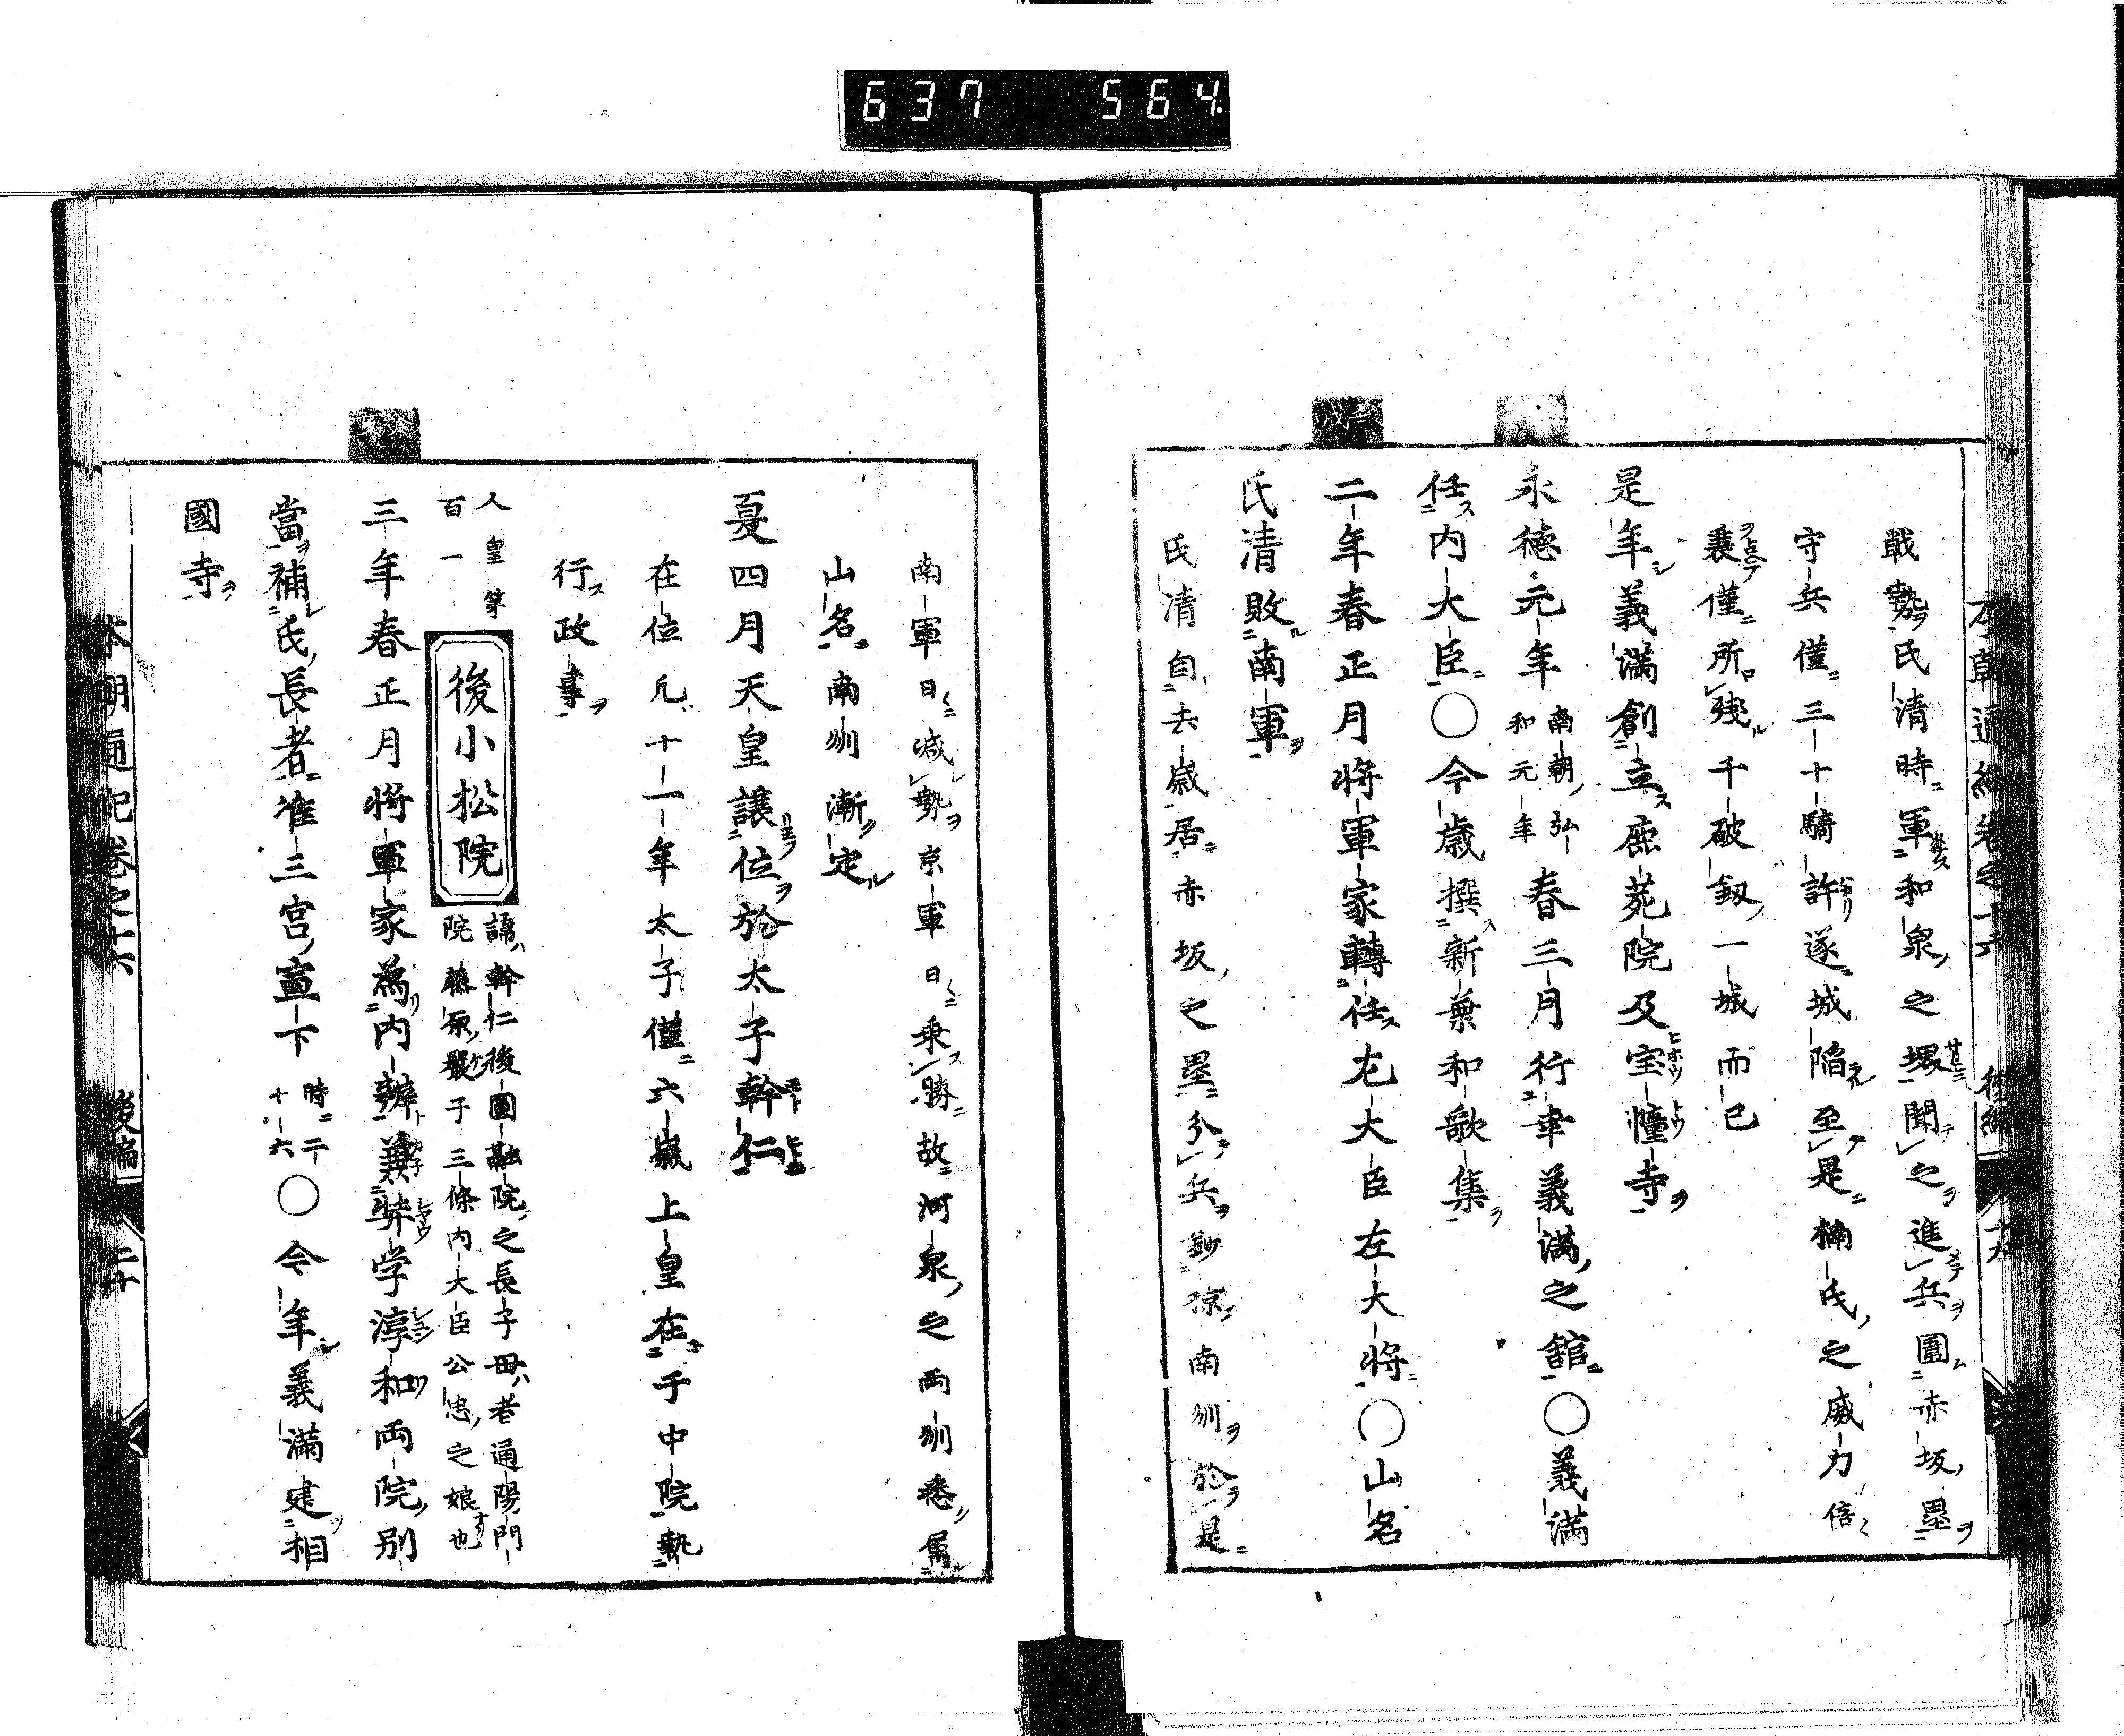 637 564
戰勢氏清時軍和泉之堺聞之進兵圍赤坂壘
守兵僅三十騎許遂城陷至是楠氏之威力倍
衰僅所殘千破釼一城而已
是年義滿創立鹿苑院及宝幢寺
永徳元年南朝弘和元年春三月行幸義滿之館〇義滿
任内大臣〇今歳撰新葉和歌集
二年春正月将軍家轉任左大臣左大将〇山名
氏清敗南軍
氏清自去歳居赤坂之壘分兵鈔掠南州於是
本朝通紀卷之十六 後編 十九
南軍日減勢京軍日乗勝故河泉之両州悉属
山名南州漸定
夏四月天皇讓位於太子幹仁
在位凡十一年太子僅六歳上皇在于中院執
行政事
人皇第百一
後小松院
諱幹仁後圓融院之長子母者通陽門
院藤原嚴子三條内大臣公忠之娘也
三年春正月将軍家為内辨兼奨学淳和両院別
當補氏長者准三宮宣下時二十六〇今年義滿建相
國寺
本朝通紀卷之十六 後編 二十